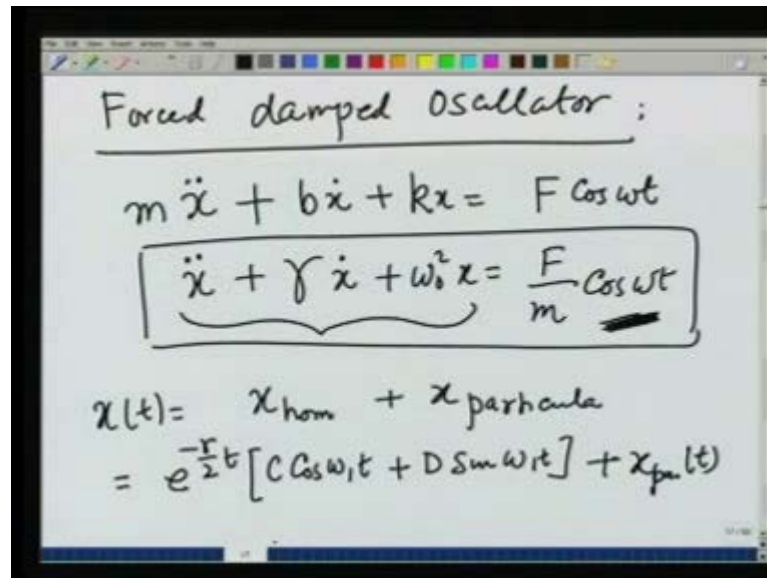 Forced damped Oscillator :
mẍ + bẋ + kx = F Cos ωt
ẍ + γẋ + ω₀²x = F/m Cos ωt
x(t) = x hom + x particula
= e^(-γ/2 t) [C Cos ω₁t + D Sin ω₁t] + x par (t)